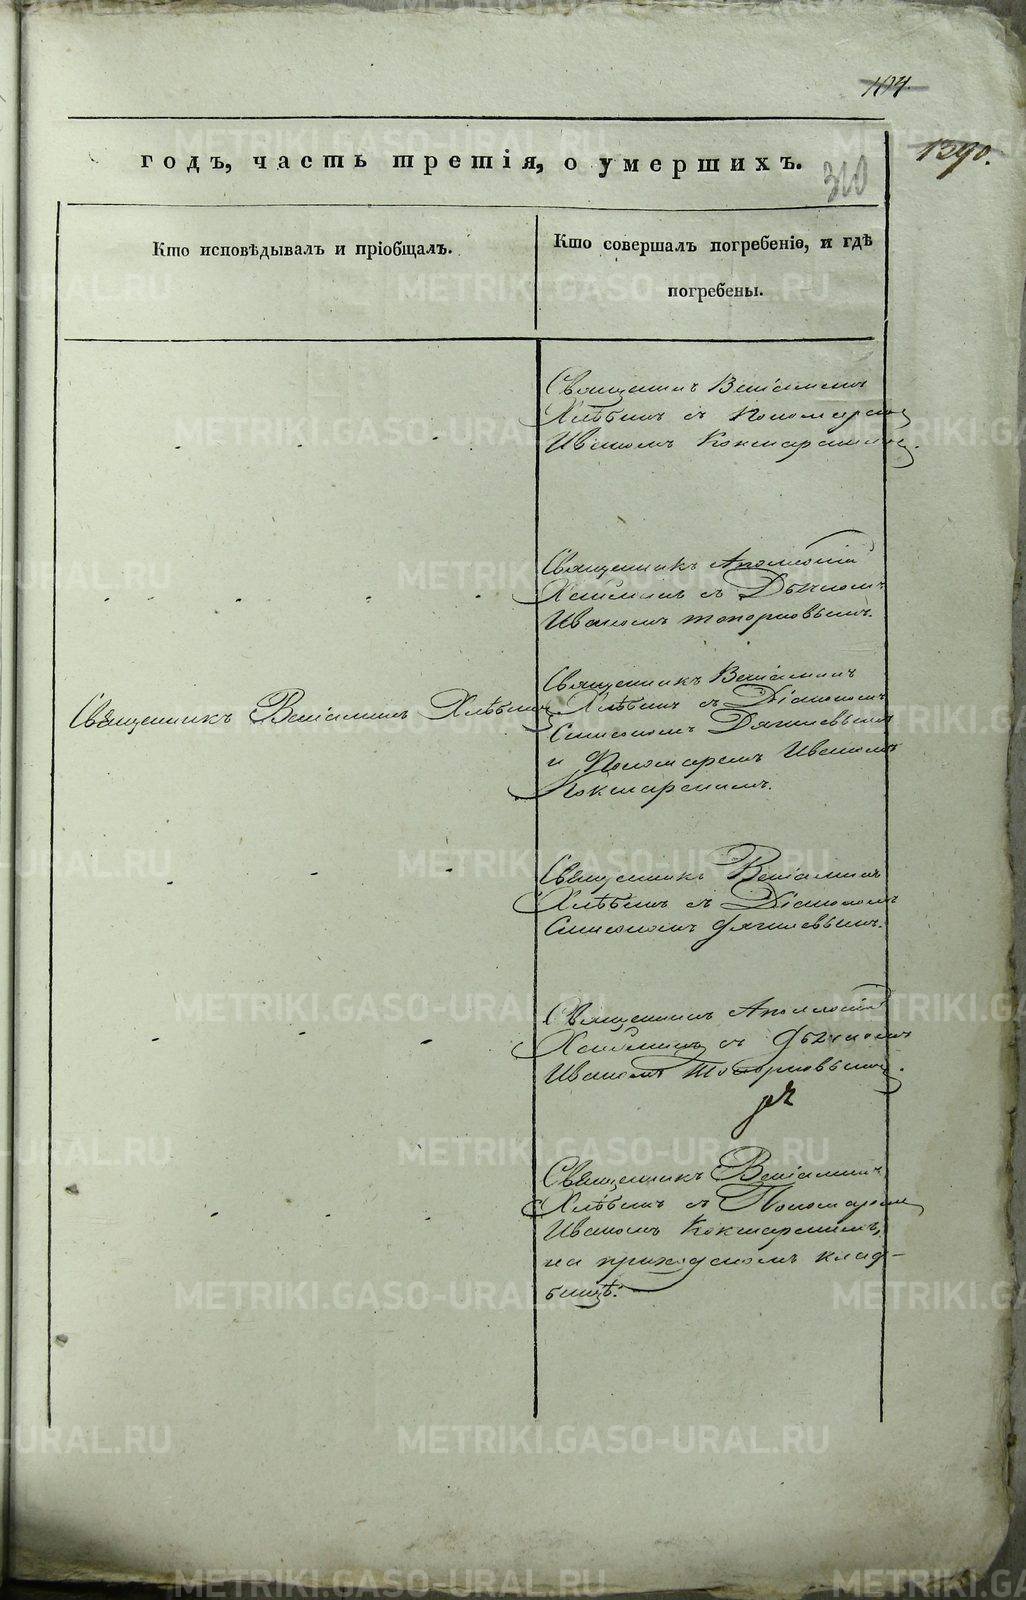 104.
1390.
годъ, часть третія, о умершихъ.
310
Кто исповѣдывалъ и пріобщалъ.
Кто совершалъ погребеніе, и гдѣ
погребены.
Священикъ Веніаминъ
Хлѣбинъ съ Пономаремъ
Иваномъ Кокшарскимъ.
Священникъ Аполлоній
съ Дьячкомъ
Иваномъ Топорковымъ.
Священникъ Веніаминъ Хлѣбинъ
Священникъ Веніаминъ
Хлѣбинъ съ Діакономъ
Симеономъ Дягилевымъ
и Пономаремъ Иваномъ
Кокшарскимъ.
Священникъ Веніаминъ
Хлѣбинъ съ Діакономъ
Симеономъ Дягилевымъ.
Священникъ Аполлоній
съ Дьячкомъ
Иваномъ Топорковымъ.
Священникъ Веніаминъ
Хлѣбинъ съ Пономаремъ
Иваномъ Кокшарскимъ,
на приходскомъ клад-
бищѣ.
METRIKI.GASO-URAL.RU